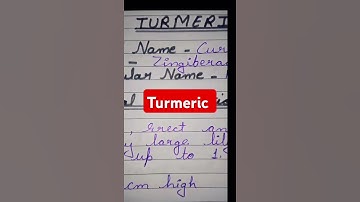 TURMERI
Name - Cur
- Zingiberac
lar Name -
Turmeric
, erect an
y large
up to 1.
cm high